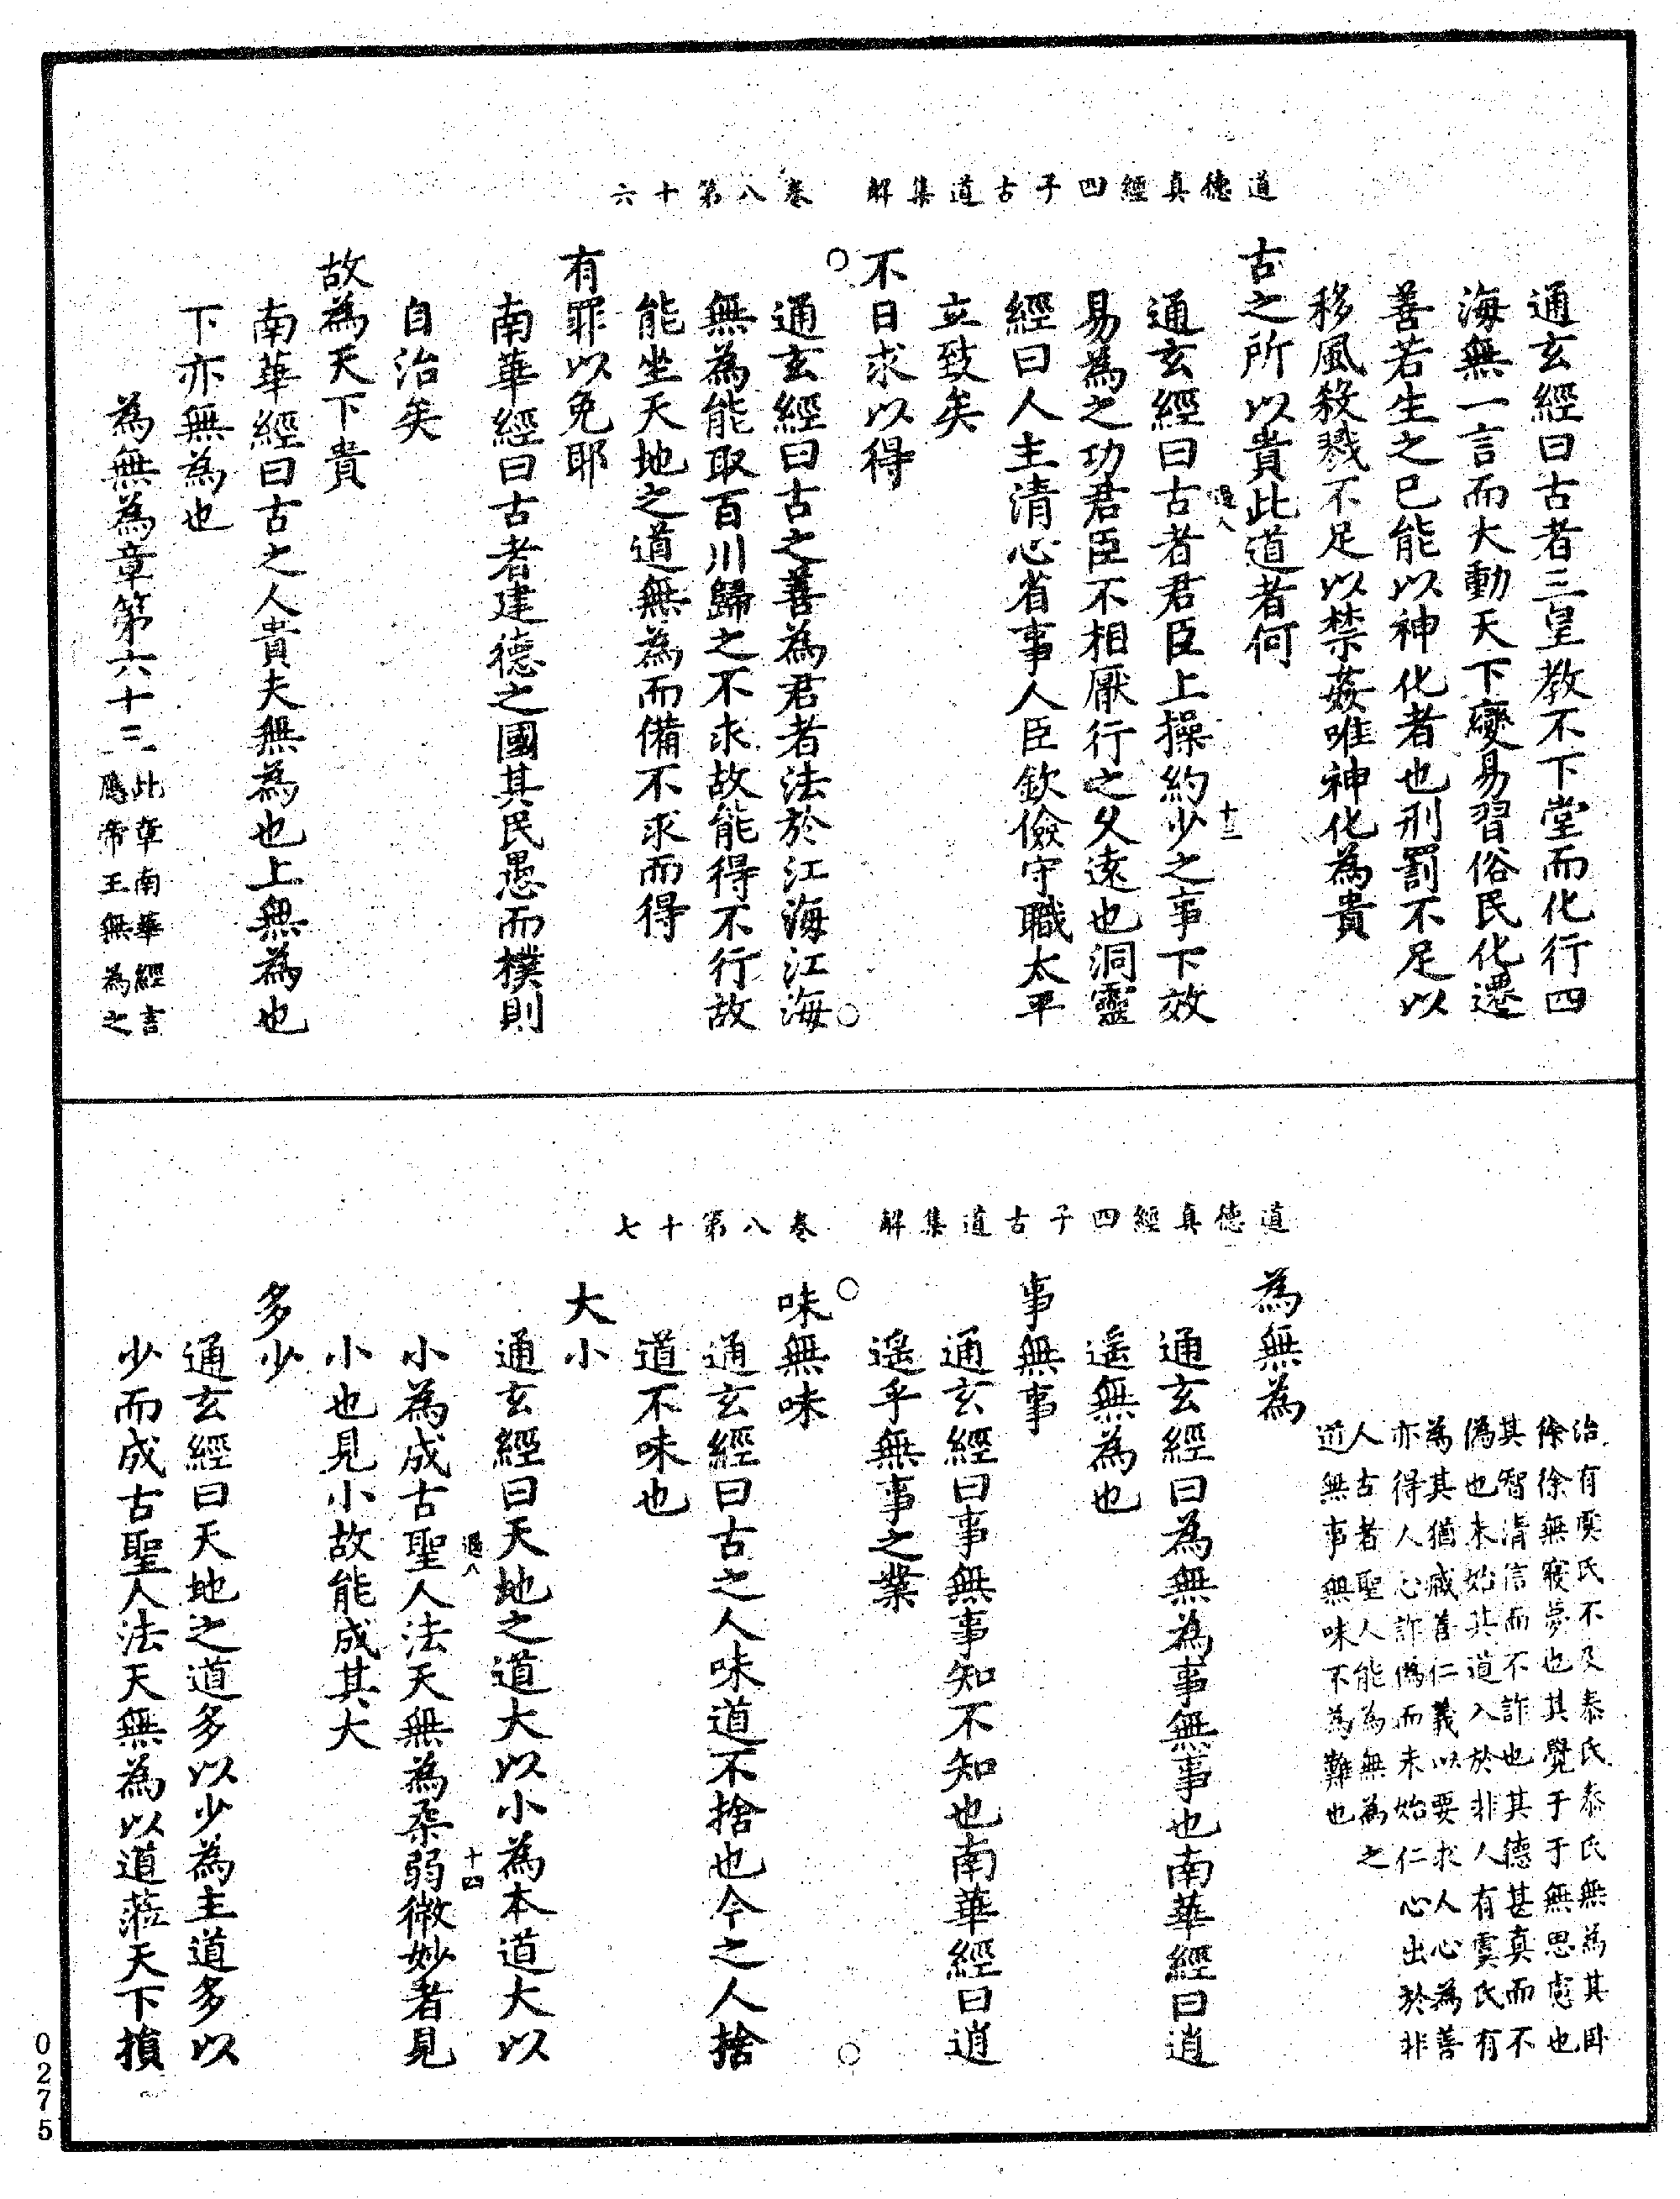 道德真經四子古道集解　卷八第十六
通玄經曰古者三皇教不下堂而化行四
海無一言而大動天下變易習俗民化遷
善若生之已能以神化者也刑罰不足以
移風殺戮不足以禁姦唯神化為貴
古之所以貴此道者何
過八　十三
通玄經曰古者君臣上操約少之事下效
易為之功君臣不相厭行之久遠也洞靈
經曰人主清心省事人臣欽儉守職太平
立致矣
不日求以得
通玄經曰古之善為君者法於江海江海
無為能取百川歸之不求故能得不行故
能坐天地之道無為而備不求而得
有罪以免耶
南華經曰古者建德之國其民愚而樸則
自治矣
故為天下貴
南華經曰古之人貴夫無為也上無為也
下亦無為也
為無為章第六十三此章南華經言
應帝王無為之
道德真經四子古道集解　卷八第十七
治有虞氏不及泰氏泰氏無為其卧
徐徐無寢夢也其覺于于無思慮也
其智清信而不詐也其德甚真而不
偽也未始其道入於非人有虞氏有
為其猶臧善仁義以要求人心為善
亦得人心詐偽而未始仁心出於非
人古者聖人能為無為之
道無事無味不為難也
為無為
通玄經曰為無為事無事也南華經曰逍
遙無為也
事無事
通玄經曰事無事知不知也南華經曰逍
遙乎無事之業
味無味
通玄經曰古之人味道不捨也今之人捨
道不味也
大小
通玄經曰天地之道大以小為本道大以
過八　十四
小為成古聖人法天無為柔弱微妙者見
小也見小故能成其大
多少
通玄經曰天地之道多以少為主道多以
少而成古聖人法天無為以道蒞天下損
0275